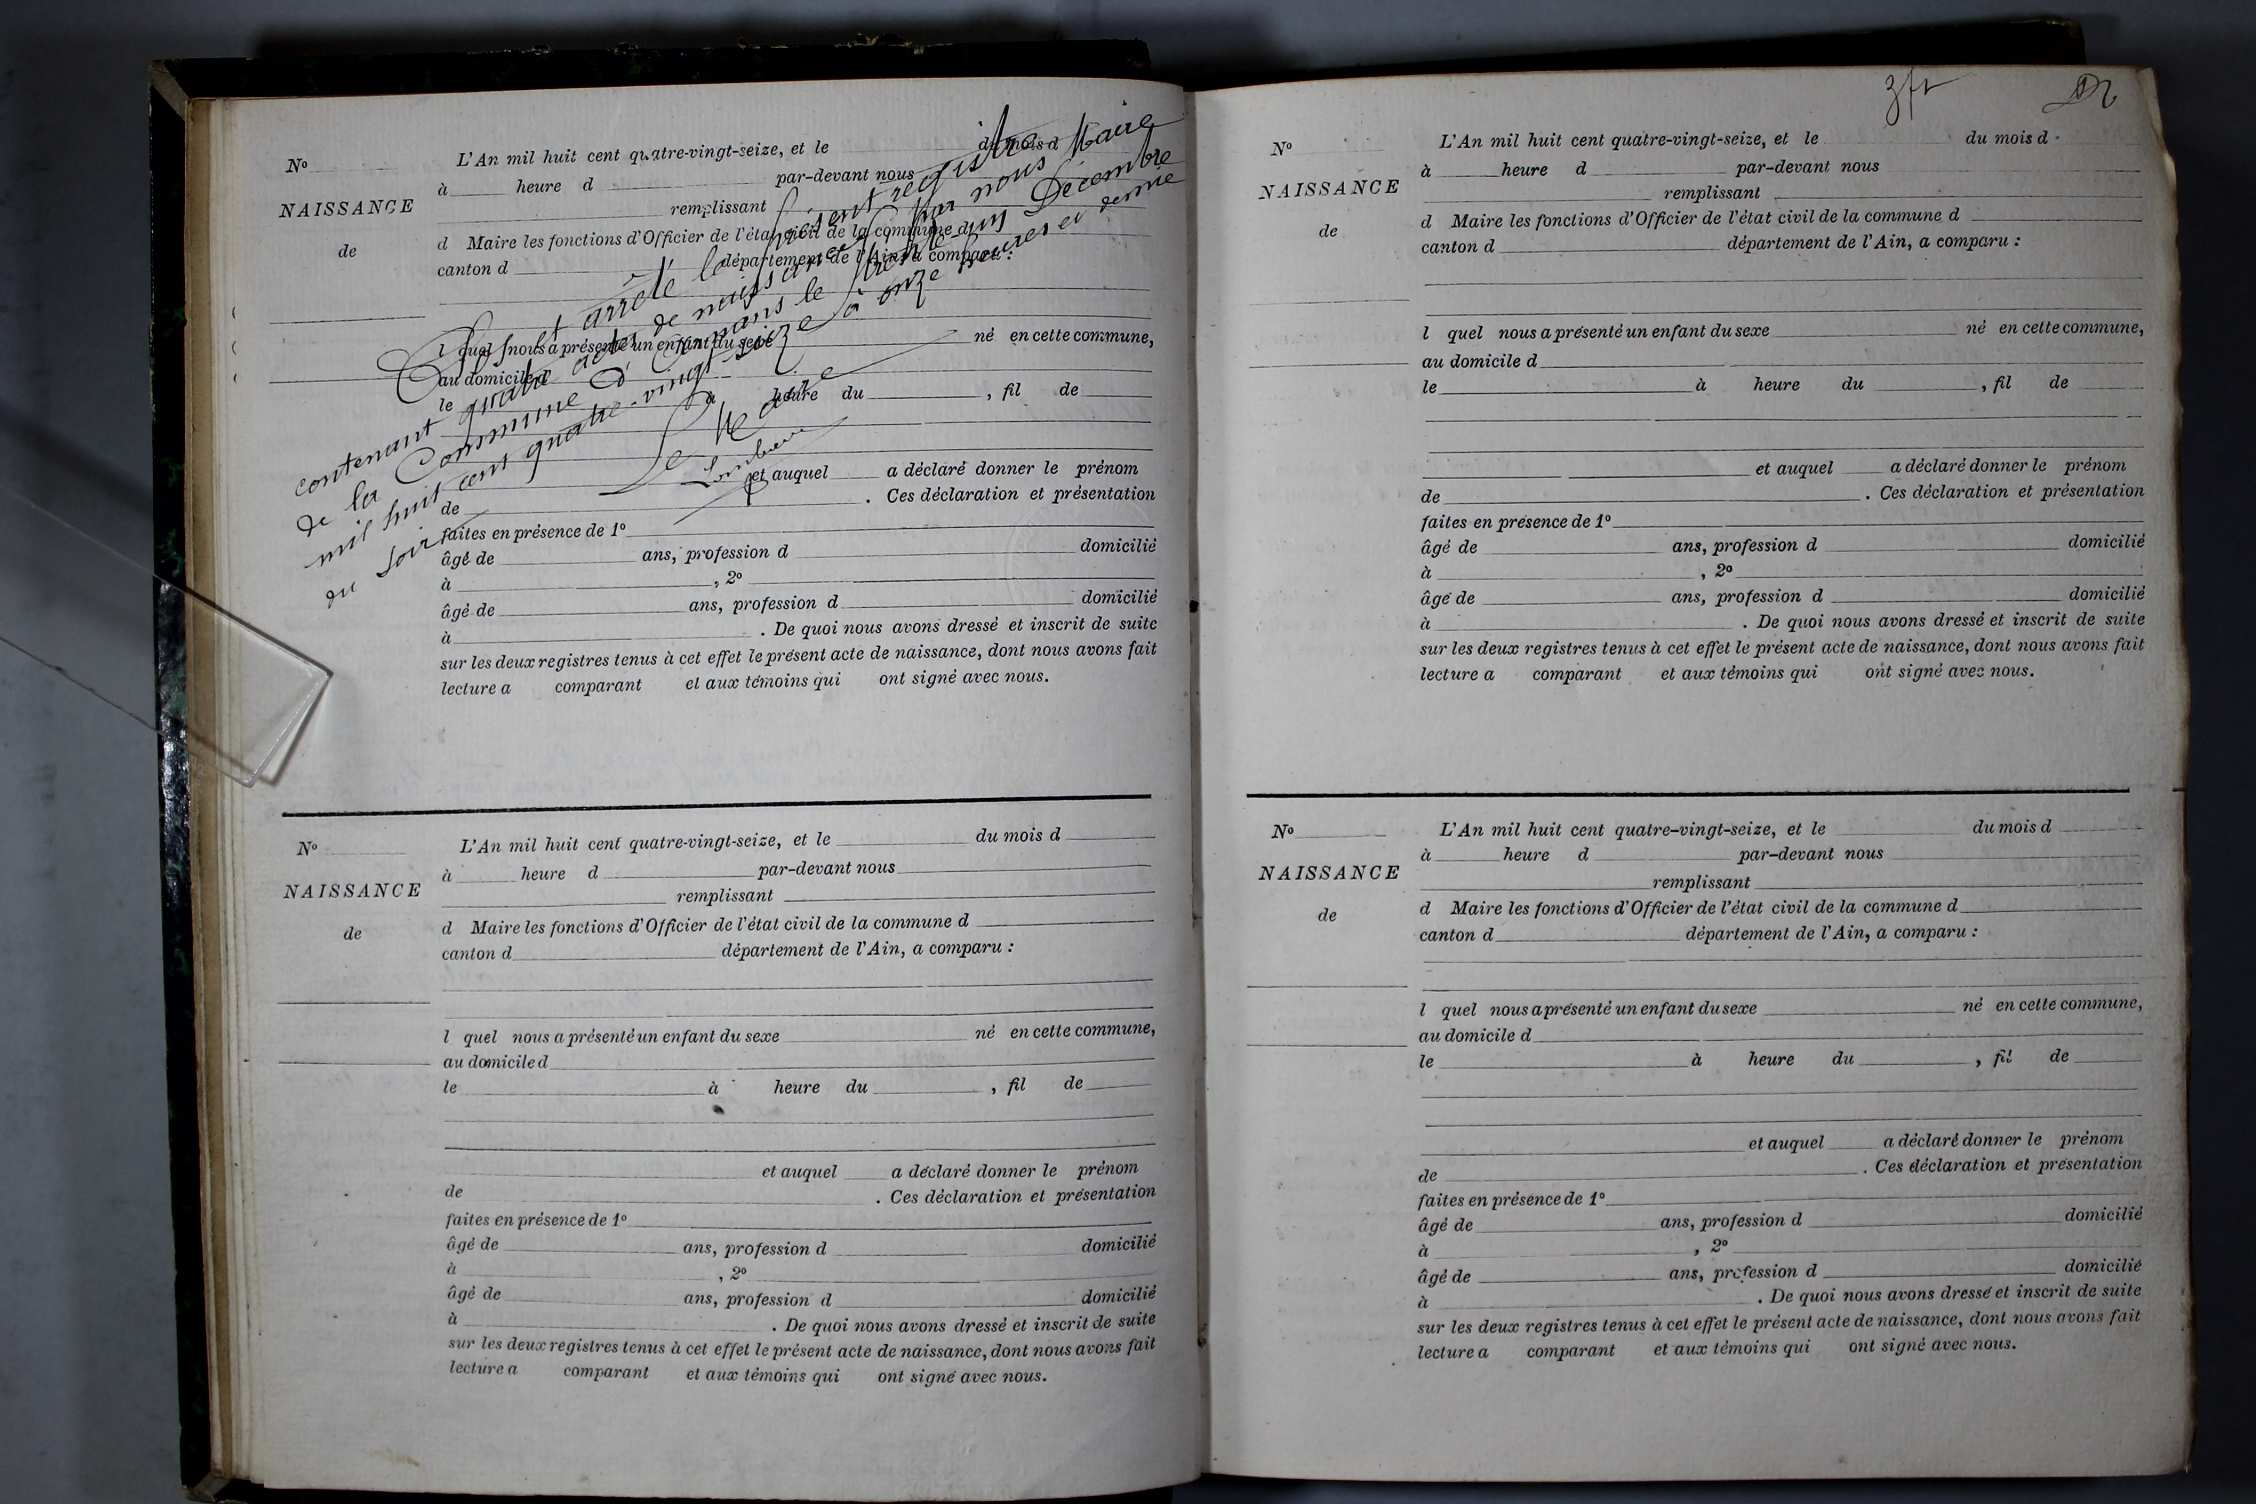 Nº
NAISSANCE
de
L'An mil huit cent quatre-vingt-seize, et le du mois d
à heure d par-devant nous
remplissant
d Maire les fonctions d'Officier de l'état civil de la commune d
canton d département de l'Ain, a comparu :
l quel nous a présenté un enfant du sexe né en cette commune,
au domicile d
le à heure du , fil de
et auquel a déclaré donner le prénom
de . Ces déclaration et présentation
faites en présence de 1º
âgé de ans, profession d domicilié
à , 2º
âgé de ans, profession d domicilié
à . De quoi nous avons dressé et inscrit de suite
sur les deux registres tenus à cet effet le présent acte de naissance, dont nous avons fait
lecture a comparant et aux témoins qui ont signé avec nous.
et arrêté le présent registre
contenant quatre actes de naissance par nous Maire
de la Commune d' le trente un Décembre
mil huit cent quatre-vingt-seize à onze heures et demie
du soir
Le Maire
Nº
NAISSANCE
de
L'An mil huit cent quatre-vingt-seize, et le du mois d
à heure d par-devant nous
remplissant
d Maire les fonctions d'Officier de l'état civil de la commune d
canton d département de l'Ain, a comparu :
l quel nous a présenté un enfant du sexe né en cette commune,
au domicile d
le à heure du , fil de
et auquel a déclaré donner le prénom
de . Ces déclaration et présentation
faites en présence de 1º
âgé de ans, profession d domicilié
à , 2º
âgé de ans, profession d domicilié
à . De quoi nous avons dressé et inscrit de suite
sur les deux registres tenus à cet effet le présent acte de naissance, dont nous avons fait
lecture a comparant et aux témoins qui ont signé avec nous.
Nº
NAISSANCE
de
L'An mil huit cent quatre-vingt-seize, et le du mois d
à heure d par-devant nous
remplissant
d Maire les fonctions d'Officier de l'état civil de la commune d
canton d département de l'Ain, a comparu :
l quel nous a présenté un enfant du sexe né en cette commune,
au domicile d
le à heure du , fil de
et auquel a déclaré donner le prénom
de . Ces déclaration et présentation
faites en présence de 1º
âgé de ans, profession d domicilié
à , 2º
âgé de ans, profession d domicilié
à . De quoi nous avons dressé et inscrit de suite
sur les deux registres tenus à cet effet le présent acte de naissance, dont nous avons fait
lecture a comparant et aux témoins qui ont signé avec nous.
Nº
NAISSANCE
de
L'An mil huit cent quatre-vingt-seize, et le du mois d
à heure d par-devant nous
remplissant
d Maire les fonctions d'Officier de l'état civil de la commune d
canton d département de l'Ain, a comparu :
l quel nous a présenté un enfant du sexe né en cette commune,
au domicile d
le à heure du , fil de
et auquel a déclaré donner le prénom
de . Ces déclaration et présentation
faites en présence de 1º
âgé de ans, profession d domicilié
à , 2º
âgé de ans, profession d domicilié
à . De quoi nous avons dressé et inscrit de suite
sur les deux registres tenus à cet effet le présent acte de naissance, dont nous avons fait
lecture a comparant et aux témoins qui ont signé avec nous.